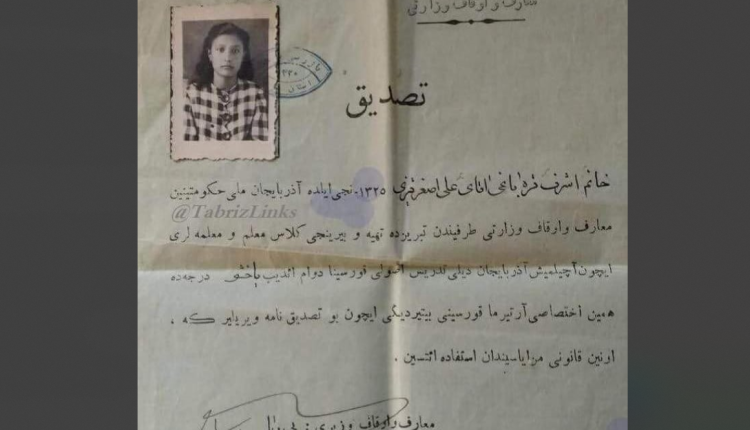 معارف و اوقاف وزارتی
تصدیق
خانم اشرف قره‌باغی آقای علی اصغر قیزی ۱۳۲۵-نجی ایلده آذربایجان ملی حکومتینین
@TabrizLinks
معارف و اوقاف وزارتی طرفیندن تبریزده تهیه و بیرینجی کلاس معلم و معلمه لری
ایچون آچیلمیش آذربایجان دیلی تدریس اصولی قورسینا دوام ائدیب یاخشی درجه‌ده
همین اختصاصی آرتیرما قورسینی بیتیردیگی ایچون بو تصدیق نامه ویریلیر که ،
اونین قانونی مزایاسیندان استفاده ائتسین .
معارف و اوقاف وزیری